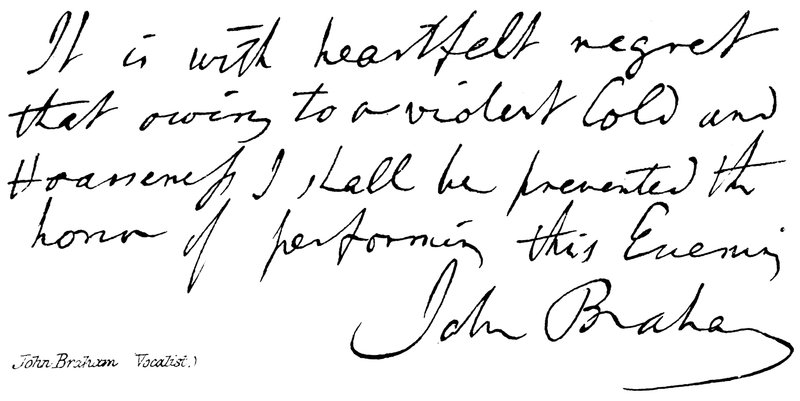 It is with heartfelt regret
that owing to a violent Cold and
Hoarseness I shall be prevented the
honor of performing this Evening
John Braham
John Braham Vocalist.)